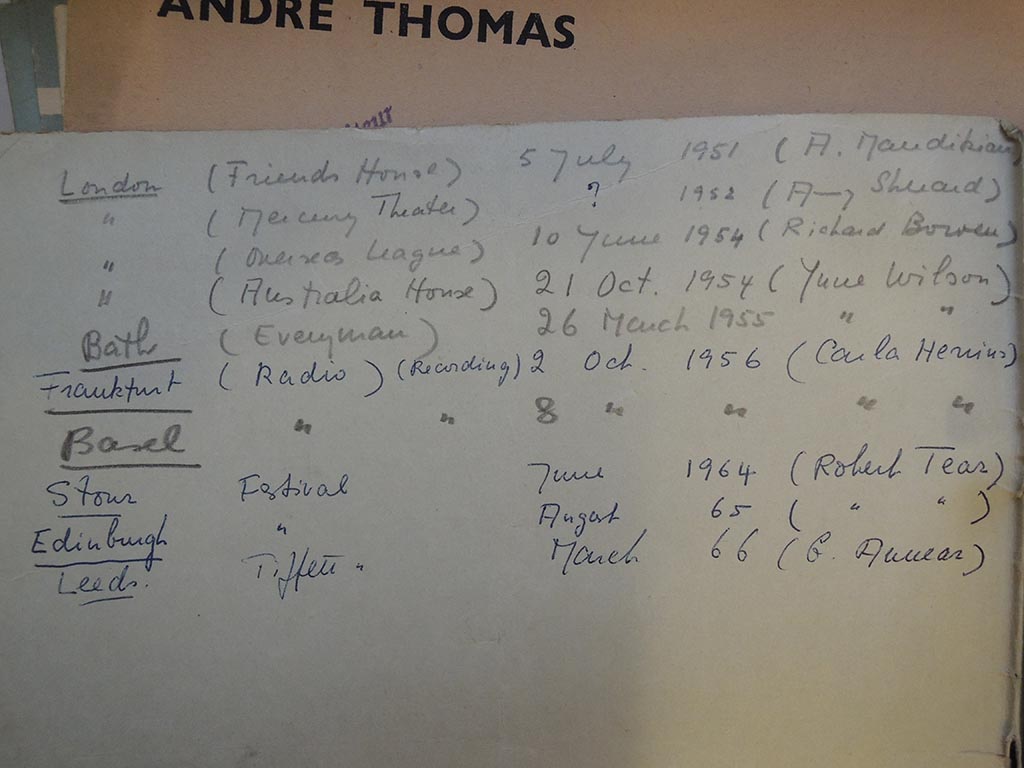 ANDRE THOMAS
our
London (Friends House) 5 July 1951 (A. Mandikian)
" (Mercury Theater) ? 1952 (A—y Sheard)
" (Overseas League) 10 June 1954 (Richard Bowen)
" (Australia House) 21 Oct. 1954 (June Wilson)
Bath (Everyman) 26 March 1955 " "
Frankfurt (Radio) (Recording) 2 Oct. 1956 (Carla Henius)
Basel " " 8 " " " "
Stour Festival June 1964 (Robert Tear)
Edinburgh " August 65 ( " " )
Leeds. Tippett " March 66 (G. Annear)